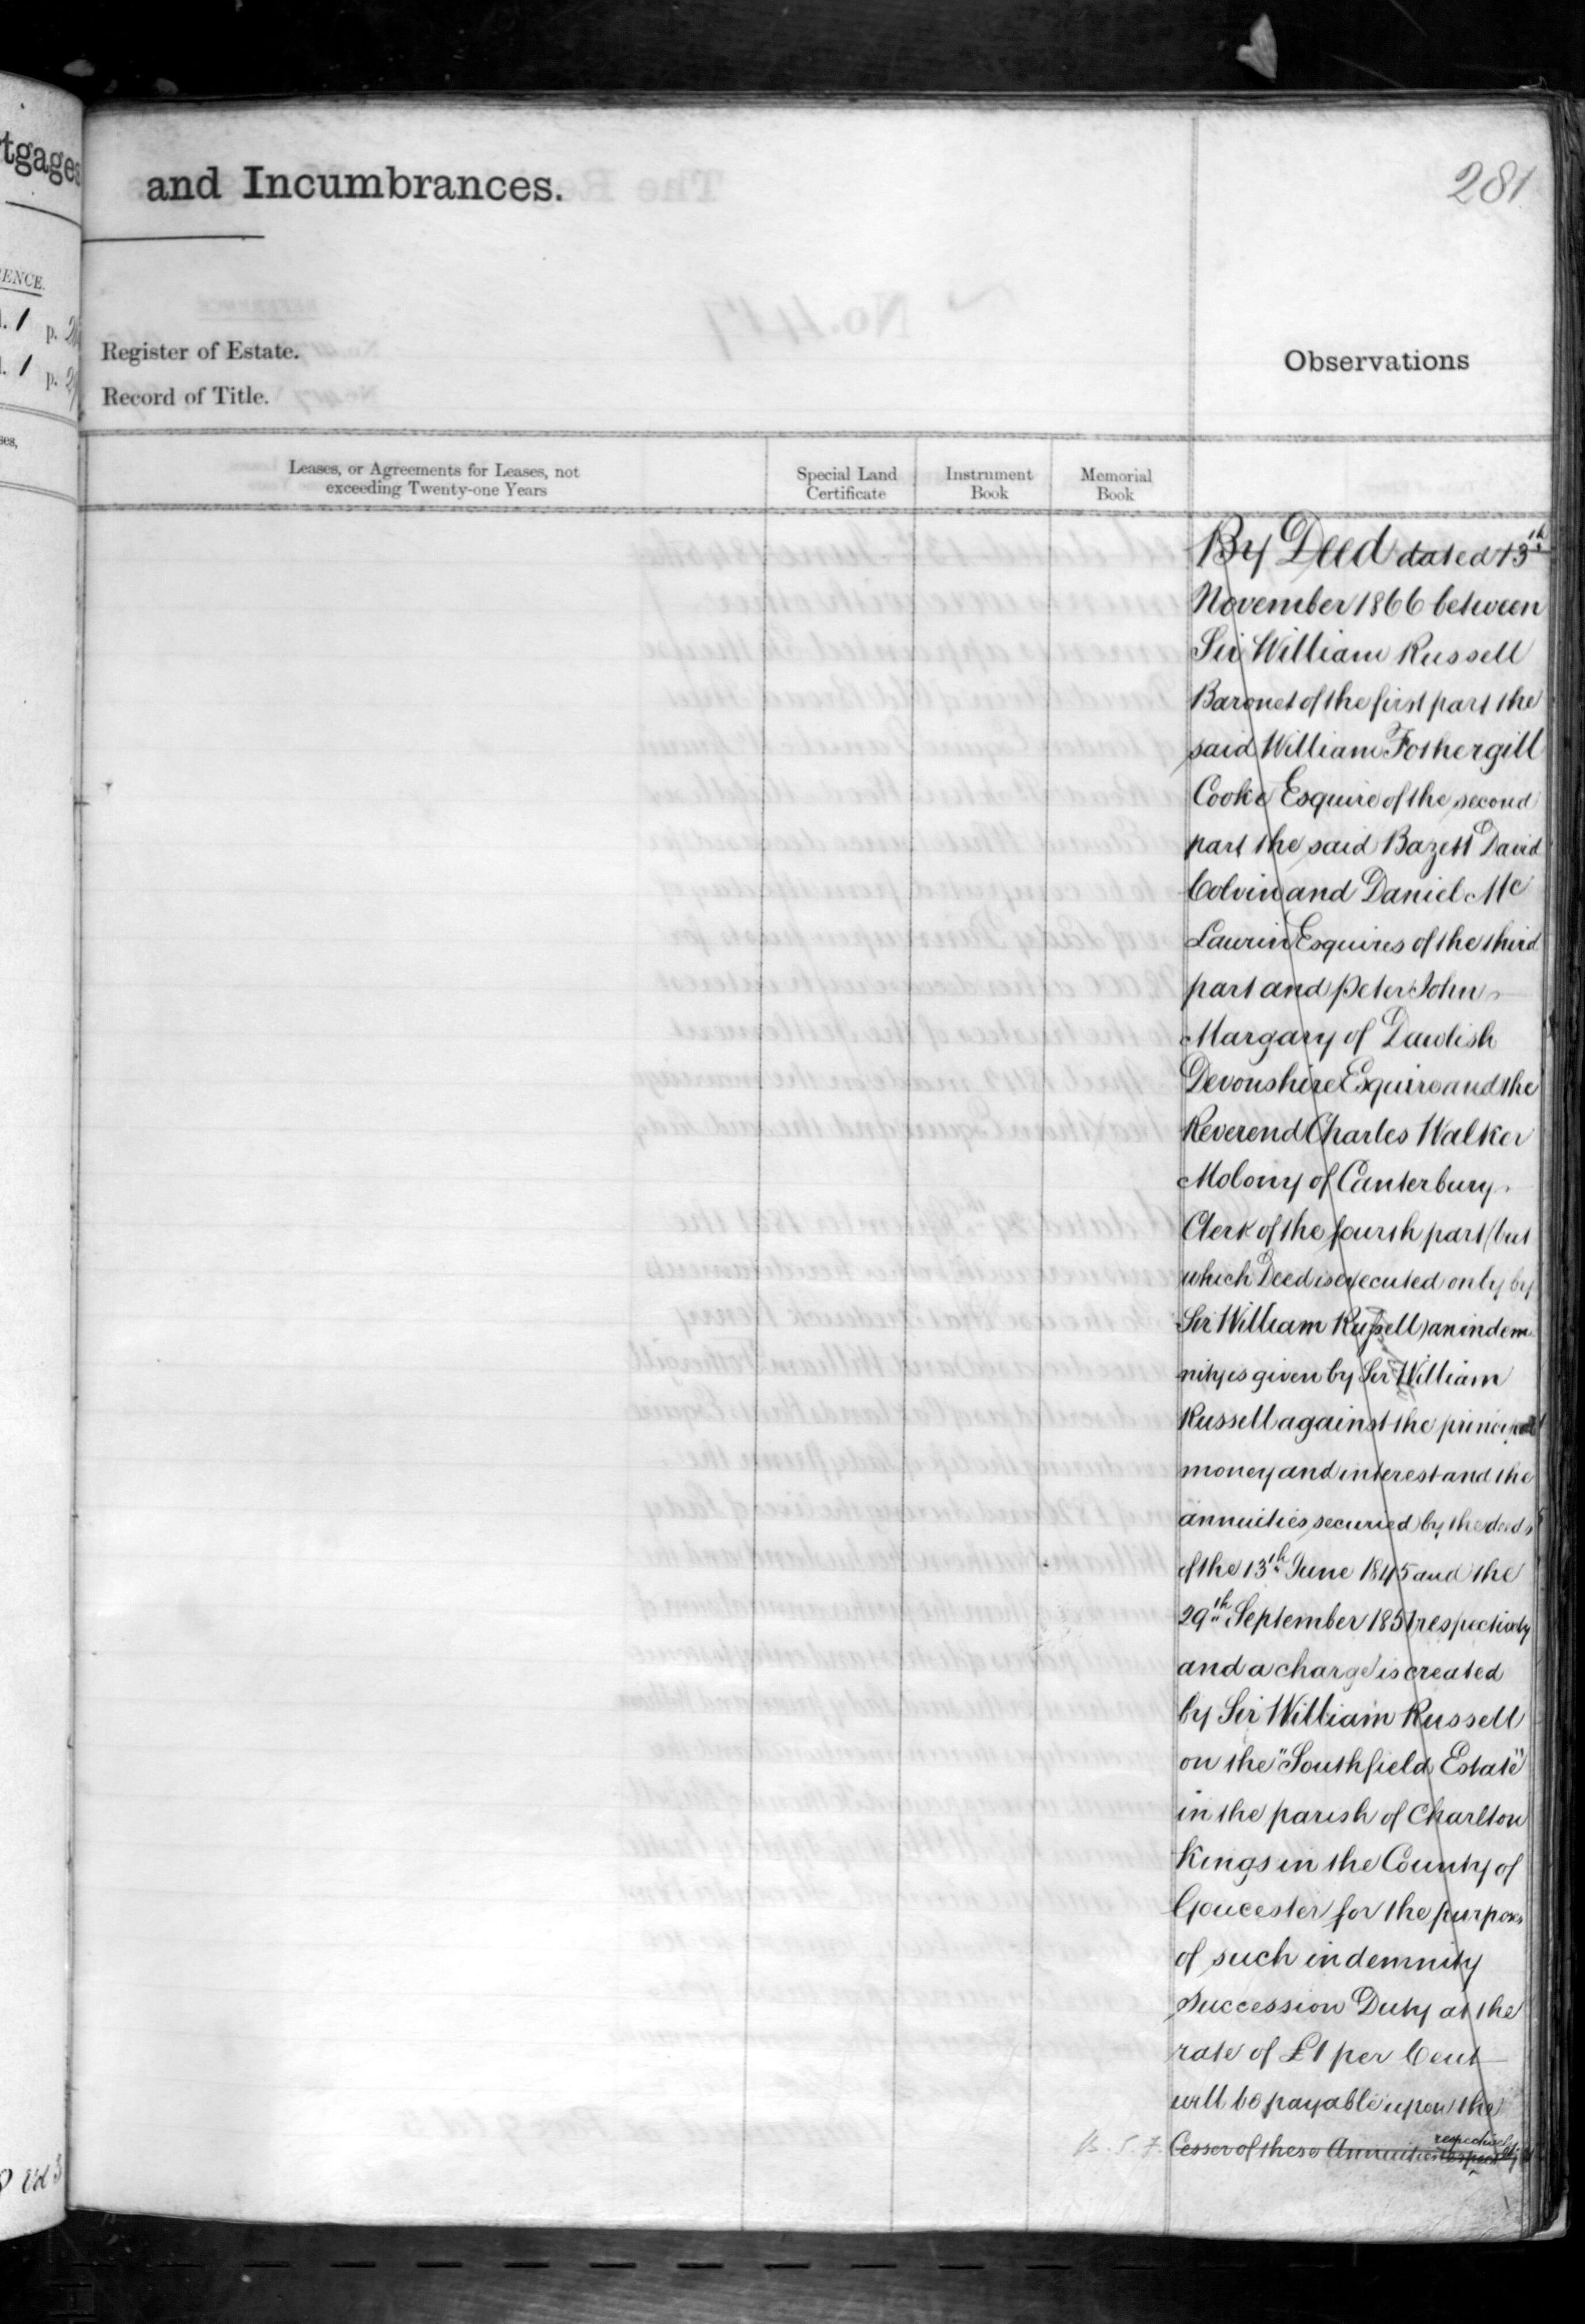 tgages
ENCE.
l. 1 p. 2
l. 1 p. 2
ses,
Vol 3
and Incumbrances.
281
Register of Estate.
Record of Title.
Observations
Leases, or Agreements for Leases, not
exceeding Twenty-one Years
Special Land
Certificate
Instrument
Book
Memorial
Book
By Deed dated 13th
November 1866 between
Sir William Russell
Baronet of the first part the
said William Fothergill
Cooke Esquire of the second
part the said Bazett David
Colvin and Daniel Mc
Laurin Esquires of the third
part and Peter John
Margary of Dawlish
Devonshire Esquire and the
Reverend Charles Walker
Molony of Canterbury
Clerk of the fourth part (but
which Deed is executed only by
Sir William Russell) an indem
nity is given by Sir William
Russell against the principal
money and interest and the
annuities secured by the deeds
of the 13th June 1845 and the
29th September 1851 respectively
and a charge is created
by Sir William Russell
on the "Southfield Estate"
in the parish of Charlton
Kings in the County of
Gloucester for the purposes
of such indemnity
Succession Duty at the
rate of £1 per Cent
will be payable upon the
respectively
Cesser of these Annuities